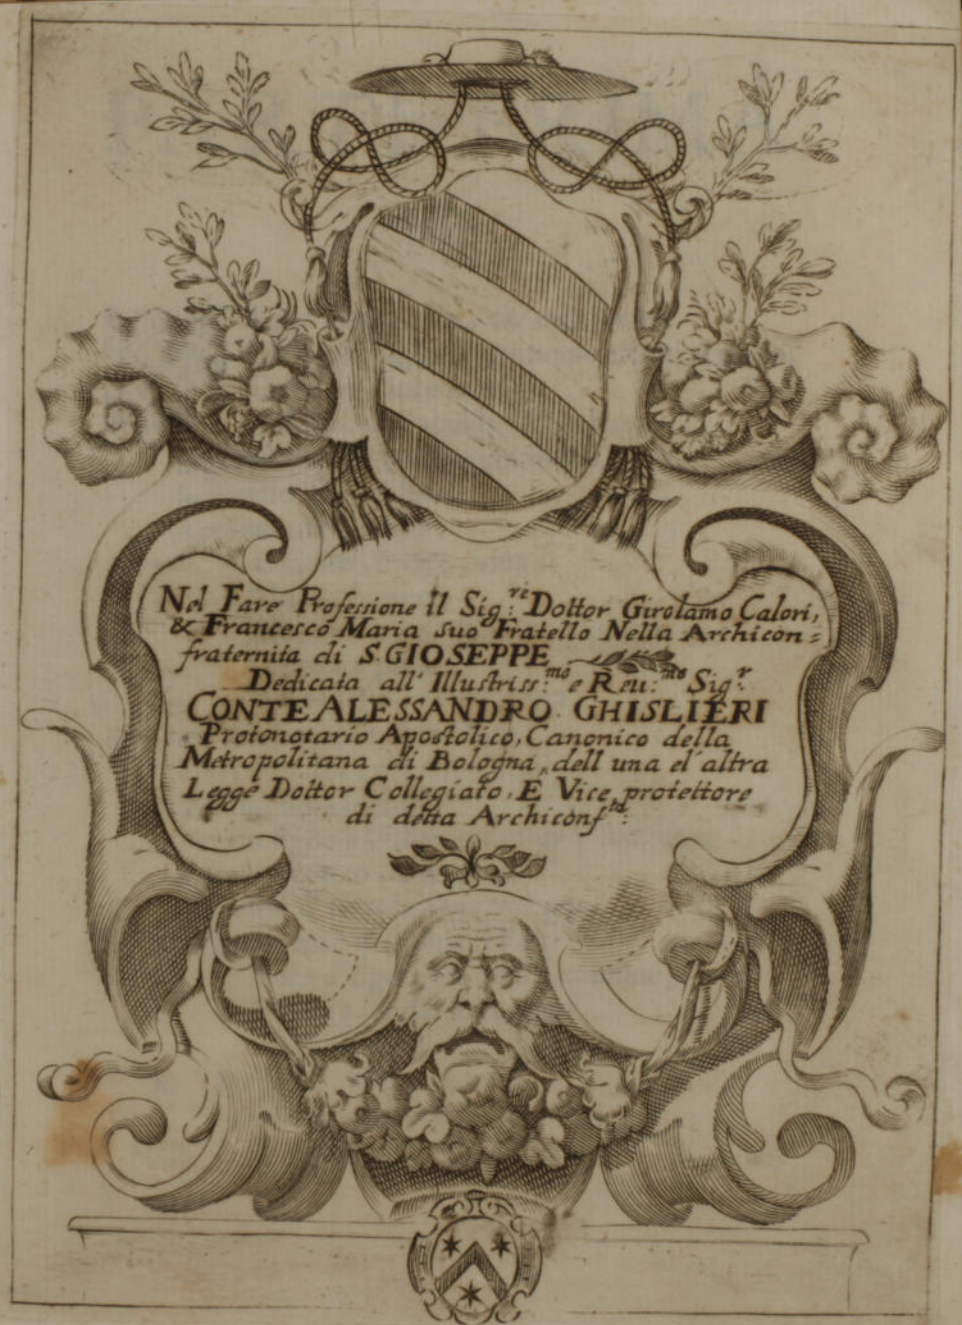 Nel Fare Professione il Sig:re Dottor Girolamo Calori,
& Francesco Maria suo Fratello Nella Archicon=
fraternita di S. GIOSEPPE
Dedicata all' Illustriss:mo e Reu:mo Sigr
CONTE ALESSANDRO GHISLIERI
Protonotario Apostolico, Canonico della
Metropolitana di Bologna, dell una el' altra
Legge Dottor Collegiato, E Vice protettore
di detta Archiconf:ta